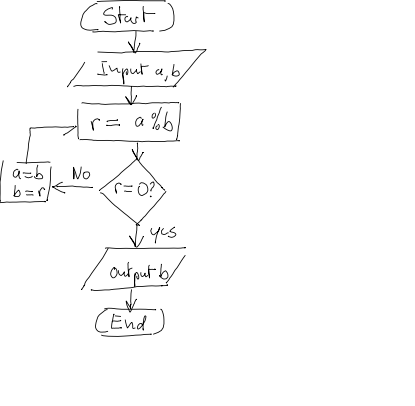 Start
Input a,b
r = a %b
r=0?
No
a=b
b=r
yes
output b
End